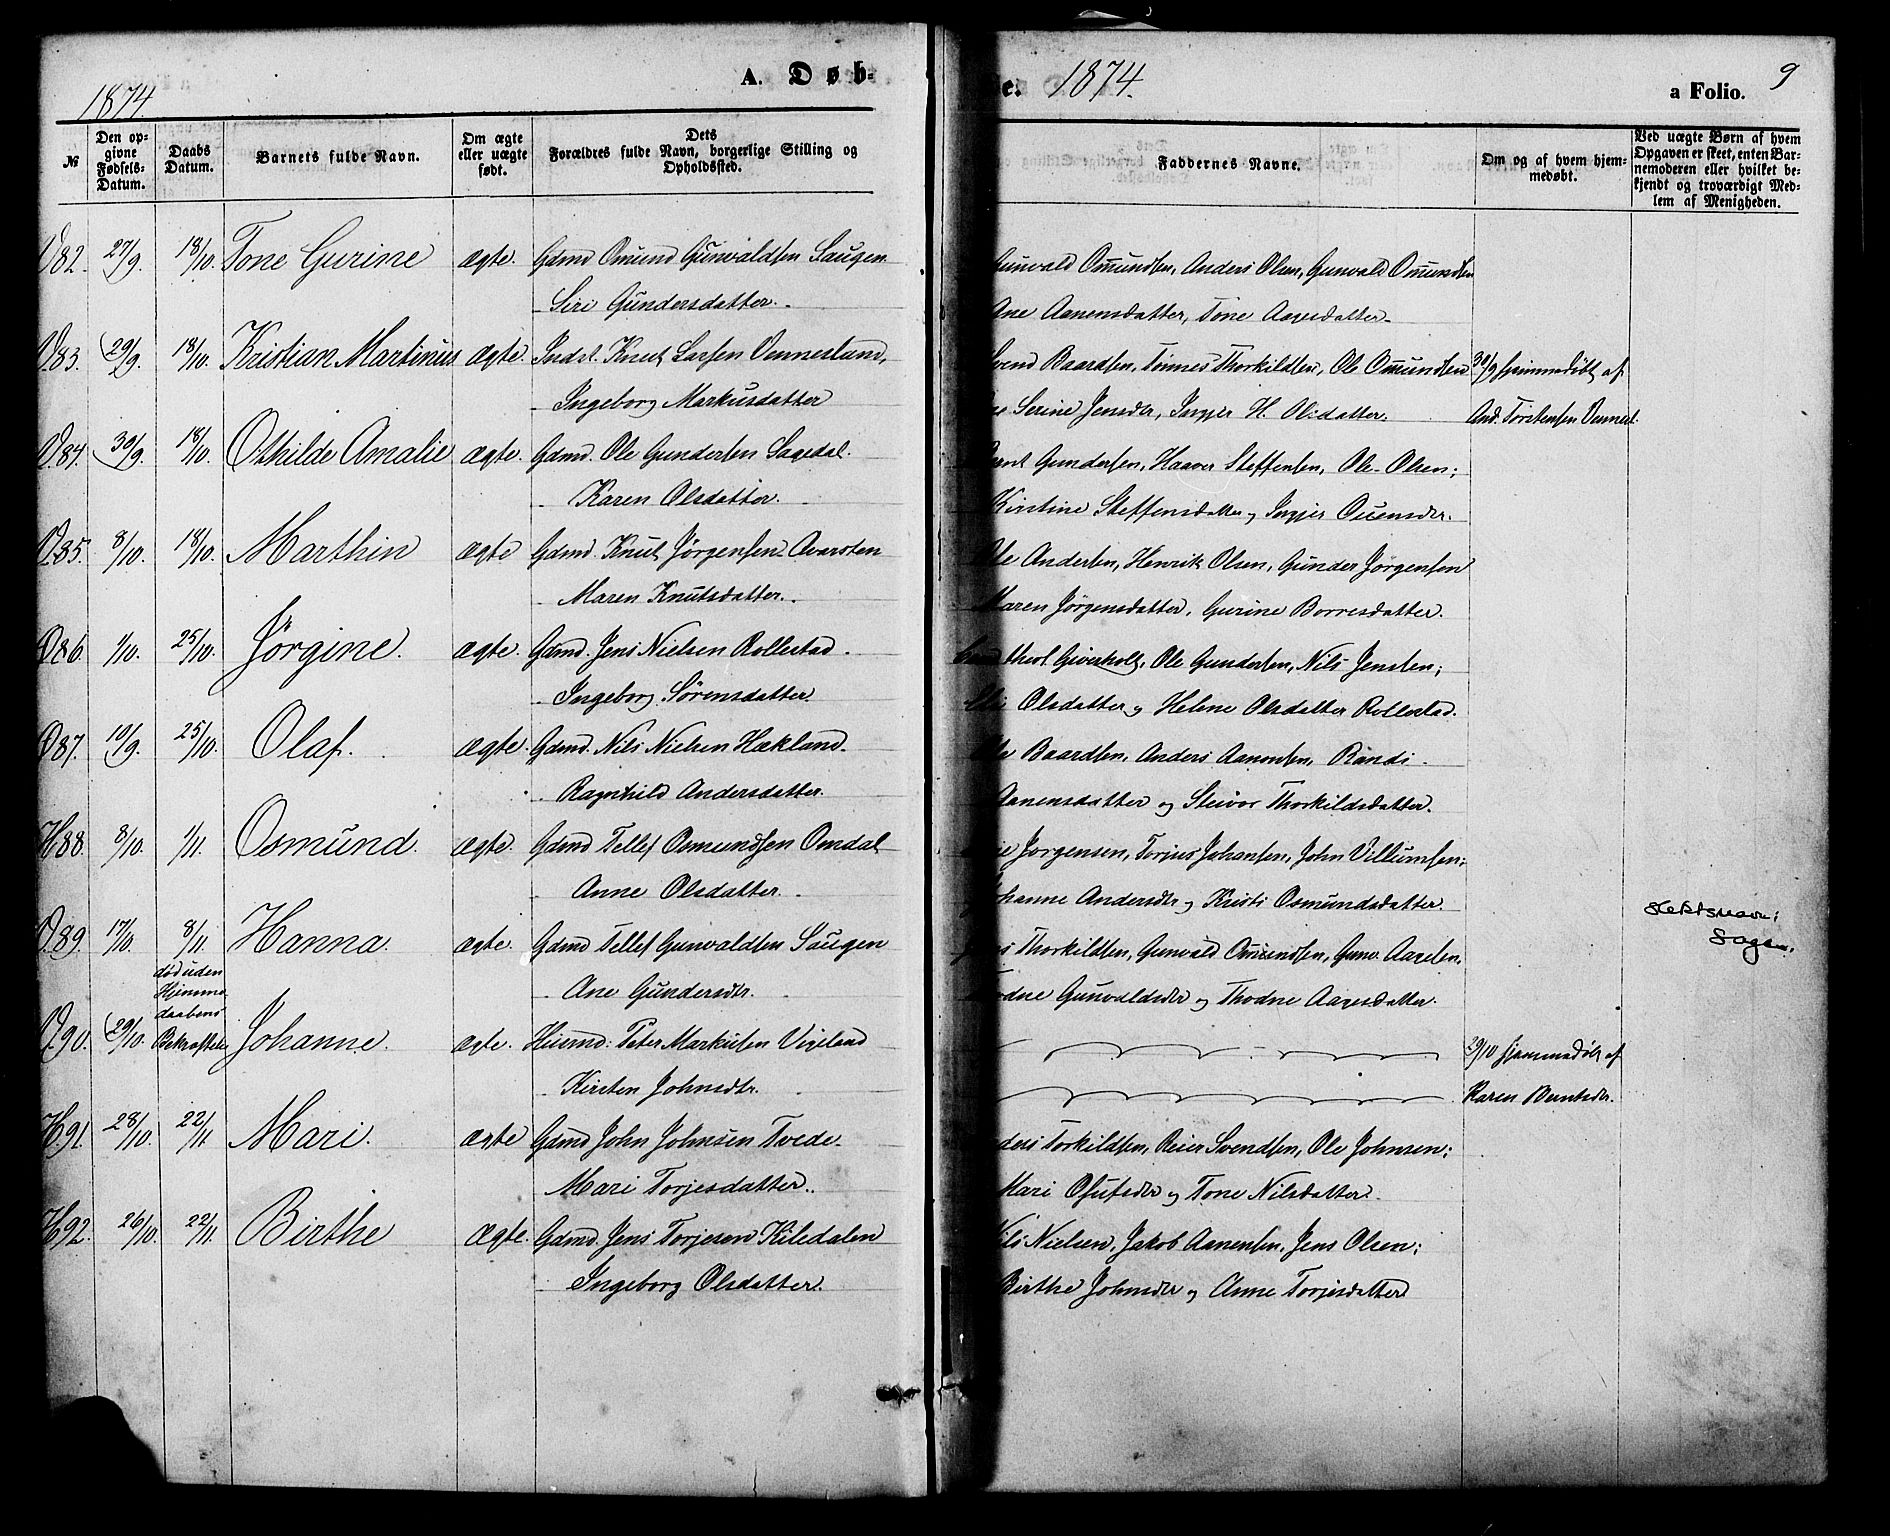 1874.
A. Døb-
№
Den op-
givne
Fødsels-
Datum.
Daabs
Datum.
Barnets fulde Navn.
Om ægte
eller uægte
født.
Dets
Forældres fulde Navn, borgerlige Stilling og
Opholdssted.
82. 27/9. 18/10. Tone Gurine ægte. Gdmd Omund Gunvaldsen Saugen
Siri Gundersdatter.
83. 29/9. 18/10. Kristian Martinus ægte. Indst. Knut Larsen Vennesland,
Ingeborg Markusdatter
84. 30/9. 18/10. Othilde Amalie ægte. Gdmd. Ole Gundersen Sagedal.
Karen Olsdatter.
85. 8/10. 18/10. Marthin ægte Gdmd. Knut Jørgensen
Maren Knutsdatter.
86. 1/10. 25/10. Jørgine. ægte. Gdmd. Jens Nielsen Rollestad.
Ingeborg Sørensdatter.
87. 10/9. 25/10. Olaf. ægte. Gdmd. Nils Nielsen Hækland.
Ragnhild Andersdatter.
H88. 8/10. 1/11. Osmund. ægte. Gdmd Tellef Osmundsen Omdal
Anne Olsdatter.
89. 17/10. 8/11. Hanna. ægte. Gdmd Tellef Gunvaldsen Saugen
død uden
Hjemme-
daabens
Ane Gundersdtr.
90. 29/10. Bekræftelse Johanne. ægte. Huusmd: Peter Markusen Vigeland
Kirsten Johnsdtr.
H91. 28/10. 22/11 Mari. ægte Gdmd John Johnsen Tvede.
Mari Torjesdatter.
H92. 26/10. 22/11. Birthe ægte. Gdmd. Jens Torjesen Kiledalen
Ingeborg Olsdatter.
te. 1874.
a Folio. 9
Faddernes Navne.
Om og af hvem hjem-
medøbt.
Ved uægte Børn af hvem
Opgaven er skeet, enten Bar-
nemoderen eller hvilket be-
kjendt og troværdigt Med-
lem af Menigheden.
Gunvald Omundsen, Anders Olsen, Gunvald Omundsen
Ane Aanensdatter, Tone Aagesdatter
Svend Baardsen, Tønnes Thorkildsen, Ole Omundsen 30/9 hjemmedøbt af
Serine Jensdtr, Inger H. Olsdatter. And. Torstensen Vennesl.
Gundersen, Haaver Steffensen, Ole Olsen;
Kirstine Steffensdatter og Inger Ouensdr.
Ole Andersen, Henrik Olsen, Gunder Jørgensen
Maren Jørgensdatter, Gurine Borresdatter.
Ole Gundersen, Nils Jensen;
Olsdatter og Helene Olsdatter Rollestad.
Ole Baardsen, Anders Aanensen, Randi
Aanensdatter og Steivor Thorkildsdatter.
Jørgensen, Torjus Johansen, John Villumsen;
Johanne Andersdtr og Kristi Osmundsdatter.
Slektsnavn:
Sagen.
Thorkildsen, Gunvald Omundsen, Gunv. Aagesen.
Thodne Gunvaldsdr og Thodne Aagesdatter.
29/10 hjemmedøbt af
Karen Berntsdr.
Torkildsen, Reier Svendsen, Ole Johnsen;
Mari Osufsdr og Tone Nilsdatter
Nils Nielsen, Jakob Aanensen, Jens Olsen;
Birthe Johnsdr og Anne Torjesdatter